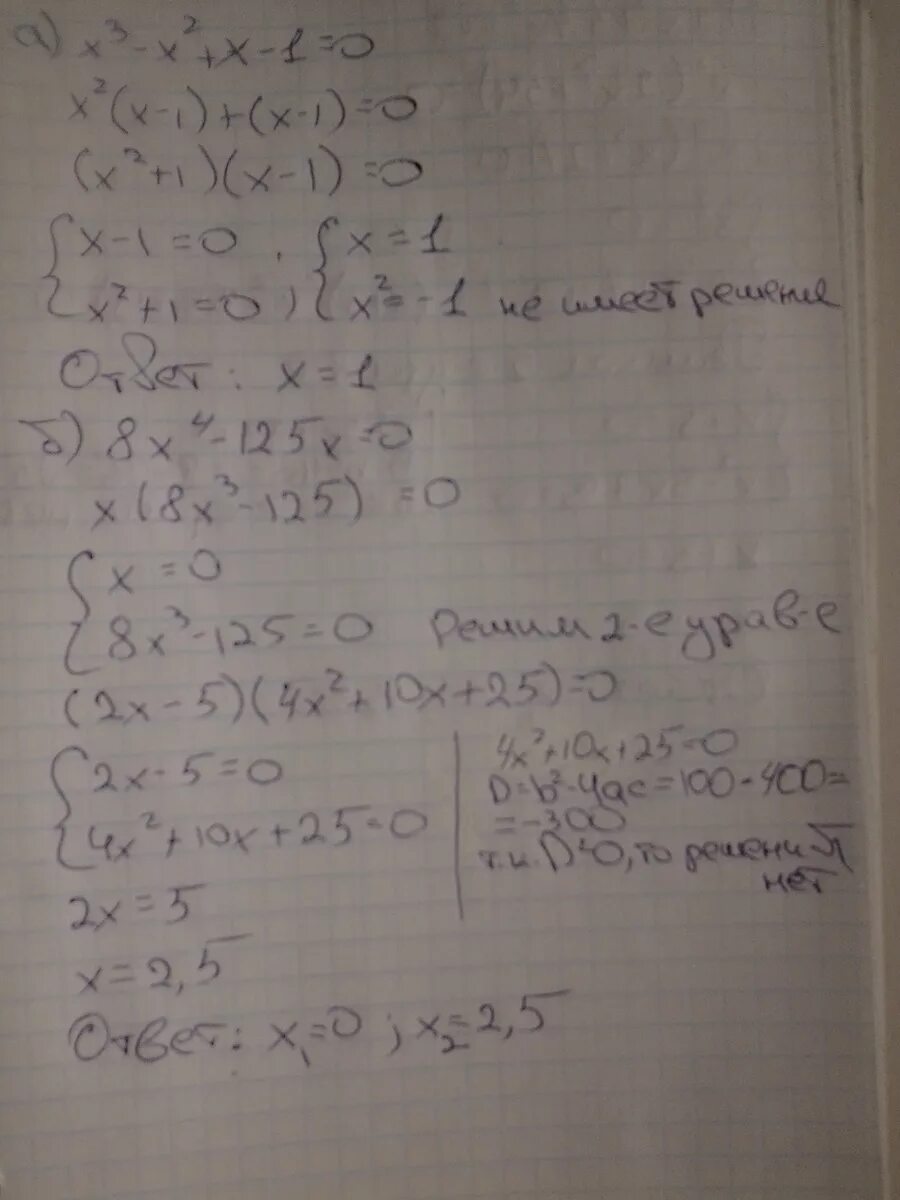 а) x³-x²+x-1=0
x²(x-1)+(x-1)=0
(x²+1)(x-1)=0
{x-1=0 , {x=1
{x²+1=0 ) {x²=-1 не имеет решение
Ответ: x=1
б) 8x⁴-125x=0
x(8x³-125)=0
{x=0
{8x³-125=0 Решим 2-е урав-е
(2x-5)(4x²+10x+25)=0
{2x-5=0
{4x²+10x+25=0
2x=5
x=2,5
4x²+10x+25=0
D=b²-4ac=100-400=
=-300
т.к. D<0, то решений
нет
Ответ: x₁=0 ; x₂=2,5